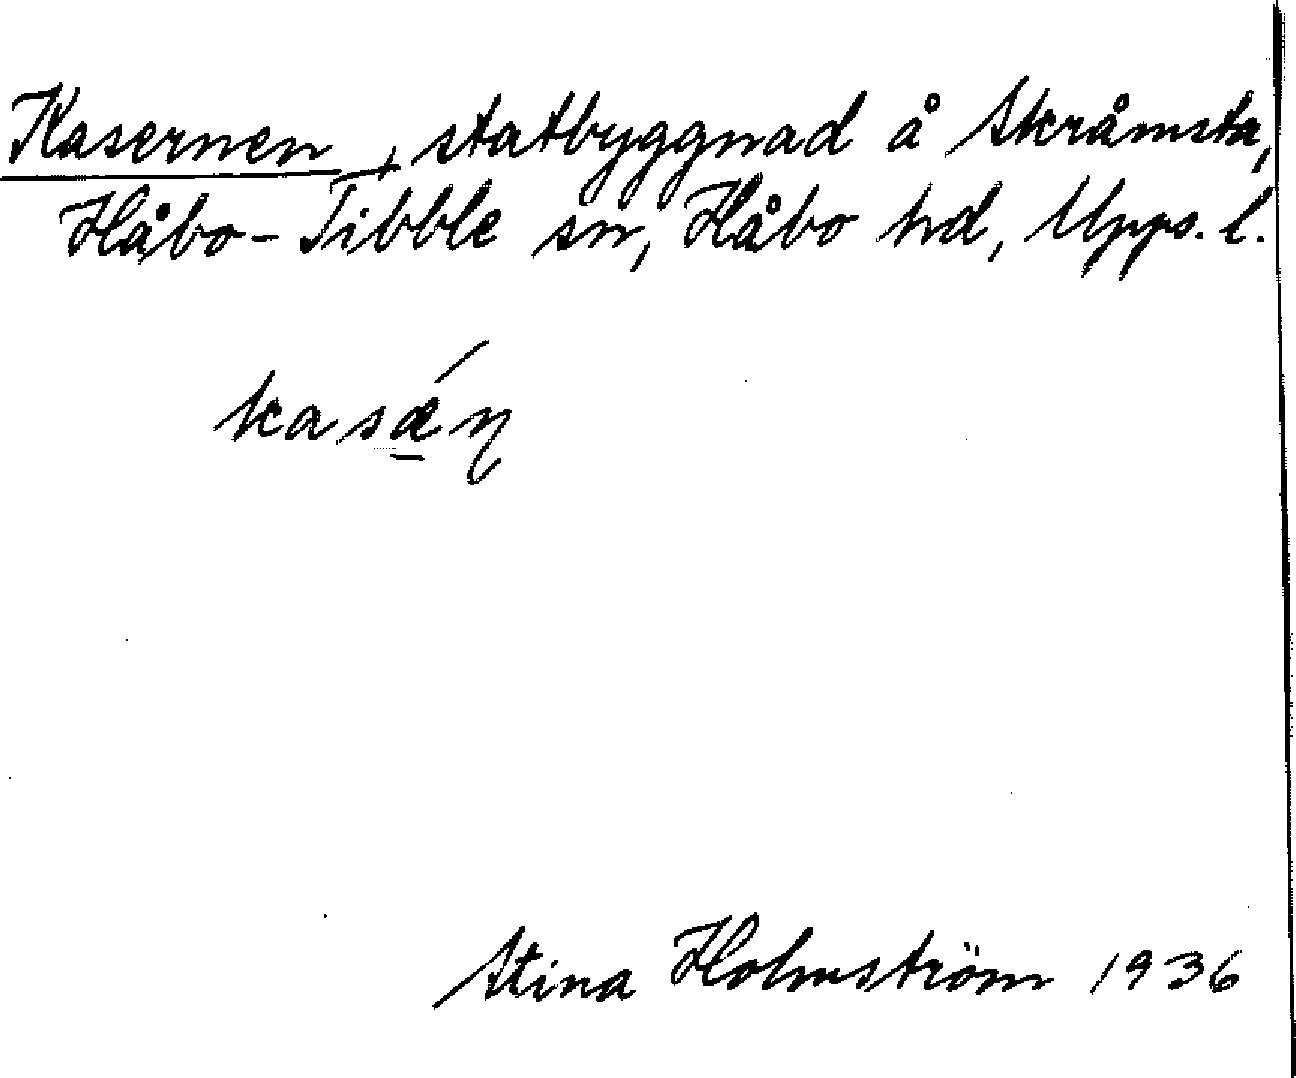 Kasernen, statbyggnad å Skråmsta,
Håbo-Tibble sn, Håbo hd, Upps. l.
kasǽ̱ɳ
Stina Holmström 1936